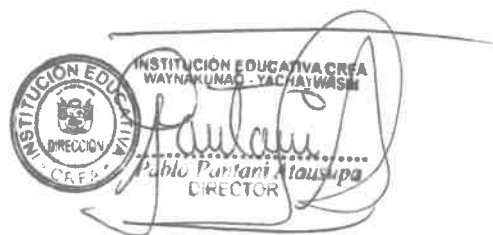 INSTITUCIÓN EDUCATIVA
DIRECCIÓN
CRFA
INSTITUCIÓN EDUCATIVA CRFA
WAYNAKUNAQ - YACHAYWASIN
Pablo Pantani Atausupa
DIRECTOR